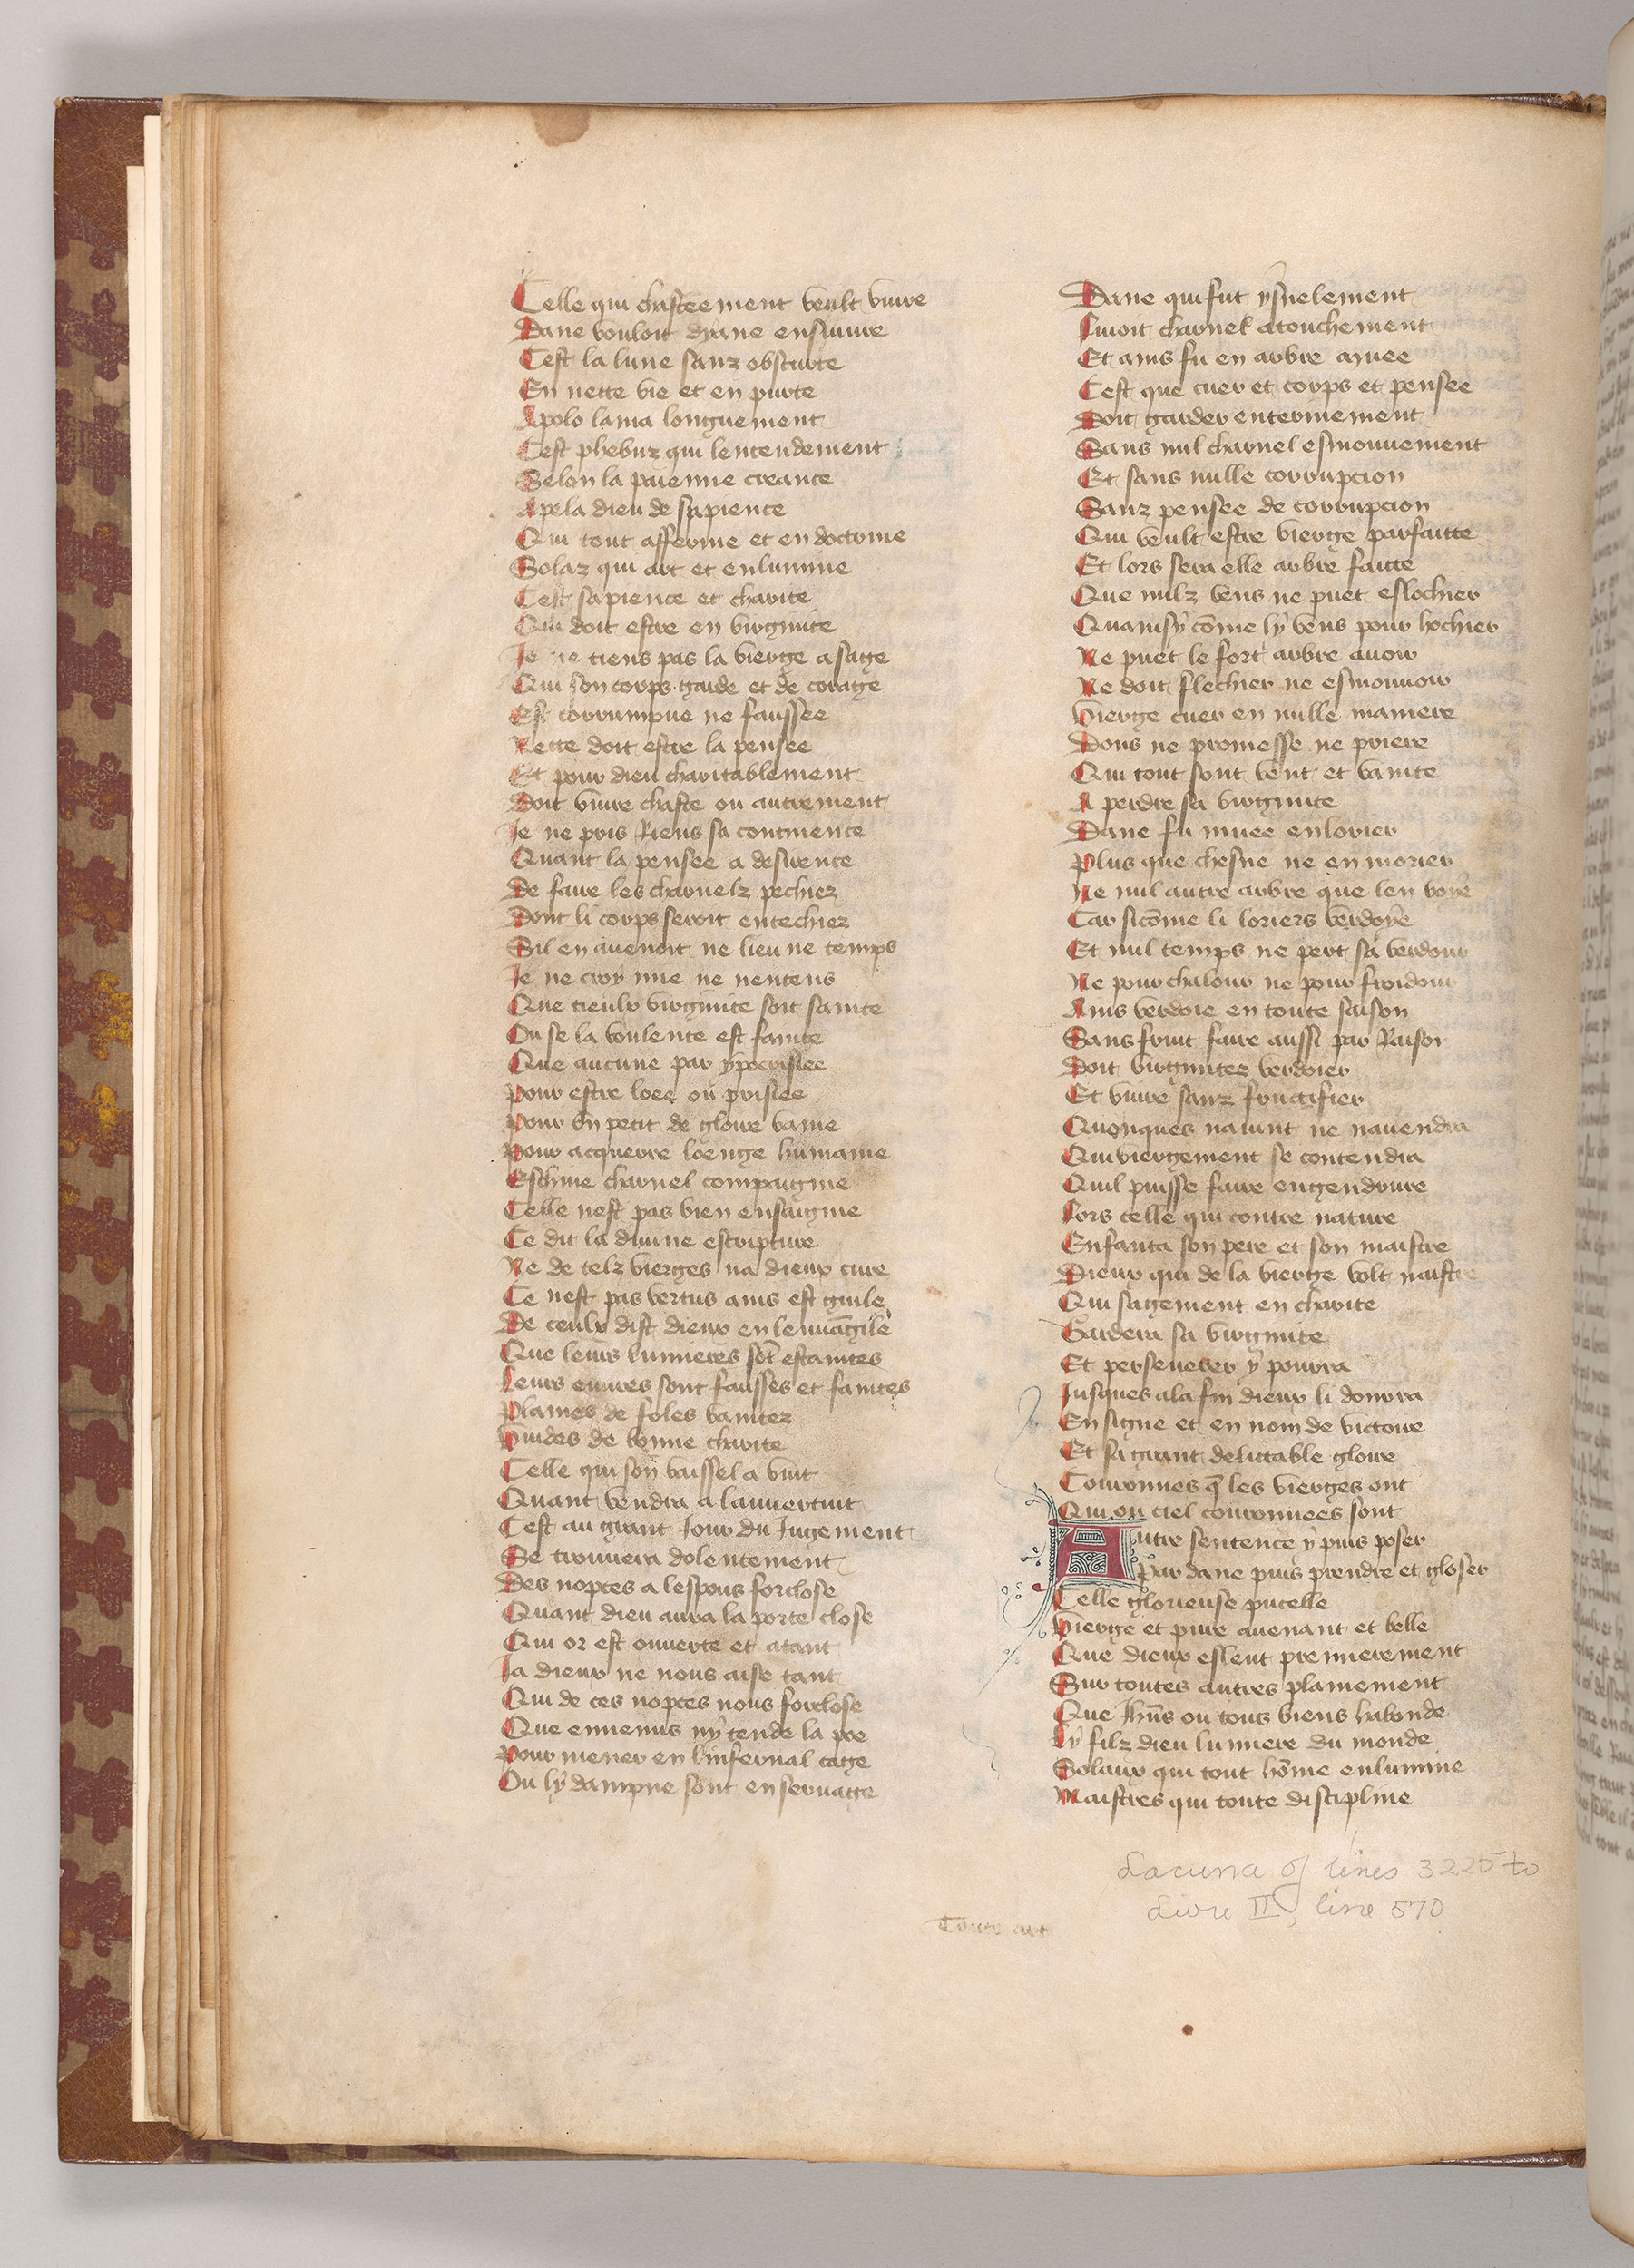 Celle qui chasteement veult viure
Dane vouloit dyane ensuiure
Cest la lune sanz obscurte
En nette vie et en purte
Apolo lama longuement
Cest phebuz qui lentendement
Selon la paienne creance
Apela dieu de sapience
Qui tout afferme et en doctrine
Solaz qui art et enlumine
Cest sapience et charite
Qui doit estre en virginite
Je ne tiens pas la vierge a sage
Qui son corps garde et de corage
Est corrumpue ne faussee
Nette doit estre la pensee
Et pour dieu charitablement
Doit viure chaste ou autrement
Je ne pris Riens sa continence
Quant la pensee a desirence
De faire les charnelz pechiez
Dont li corps seroit entechiez
Sil en auenoit ne lieu ne temps
Je ne croy mie ne nentens
Que tieulx virginite soit sainte
Ou se la voulente est fainte
Que aucune par ypocrisiee
Pour estre loee ou prisiee
Pour un petit de gloire vaine
Pour acquerre loenge humaine
Eschiue charnel compaignie
Celle nest pas bien ensaignie
Ce dit la diuine escripture
Ne de telz vierges na dieux cure
Ce nest pas vertus ains est guile
De ceulx dist dieux en leuuāgile
Que leurs lumieres sōt estaintes
Leurs euures sont fausses et faintes
Plaines de foles vanitez
Vuides de bonne charite
Celle qui son vaissel a vuit
Quant vendra a lanuertuit
Cest au grant Jour du Jugement
Se trouuera dolentement
Des nopces a lespous forclose
Quant dieu aura la porte close
Qui or est ouuerte et atant
Ja dieux ne nous aise tant
Qui de ces nopces nous forclose
Que ennemis ny tende la pre
Pour mener en linfernal cage
Ou ly dampne sont en seruage
Dane qui fut ysnelement
Fuioit charnel atouchement
Et ains fu en arbre muee
Cest que cuer et corps et pensee
Doit garder enterinement
Sans nul charnel esmouuement
Et sans nulle corrupcion
Sanz pensee de corrupcion
Qui veult estre vierge parfaitte
Et lors sera elle arbre faitte
Que nulz vens ne puet eslochier
Quainsy cōme ly vens pour hochier
Ne puet le fort arbre auoir
Ne doit flechier ne esmouuoir
Vierge cuer en nulle maniere
Dons ne promesse ne priere
Qui tout sont vent et vanite
A perdre sa virginite
Dane fu muee en lorier
Plus que chesne ne en morier
Ne nul autre arbre que len voye
Car sicōme li loriers verdoye
Et nul temps ne pert sa verdour
Ne pour chalour ne pour froidour
Ains verdoie en toute saison
Sans fruit faire aussi par Raison
Doit virginitez verdoier
Et viure sanz fructifier
Quonques nauint ne nauendra
Qui viergement se contendra
Quil puisse faire engendrure
Fors celle qui contre nature
Enfanta son pere et son maistre
Dieux qui de la vierge volt naistre
Qui sagement en charite
Gardera sa virginite
Et perseuerer y pourra
Jusques a la fin dieux li donrra
En signe et en nom de victoire
Et sa grant delittable gloire
Couronnes q̄ les vierges ont
Qui ou ciel couronnees sont
Autre sentence y puis poser
Par dane puis prendre et gloser
Celle glorieuse pucelle
Vierge et pure auenant et belle
Que dieux eslent premierement
Sur toutes autres plainement
Que Jhūs ou tous biens habonde
Ly filz dieu lumiere du monde
Solaux qui tout hōme enlumine
Maistres qui toute discipline
Lacuna of lines 3225 to
Livre II, line 570
Toute art